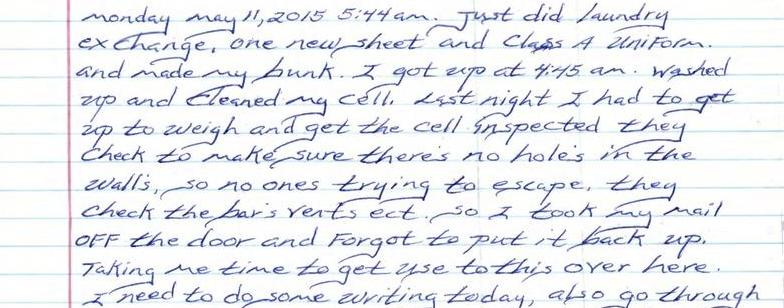 monday may 11, 2015 5:44 am. Just did laundry
exchange, one new sheet and Class A Uniform.
and made my bunk. I got up at 4:45 am. washed
up and cleaned my cell. Last night I had to get
up to weigh and get the cell inspected they
check to make sure there's no hole's in the
walls, so no ones trying to escape. they
check the bar's vents ect. so I took my mail
OFF the door and Forgot to put it back up.
Taking me time to get use to this over here.
I need to do some writing today, also go through